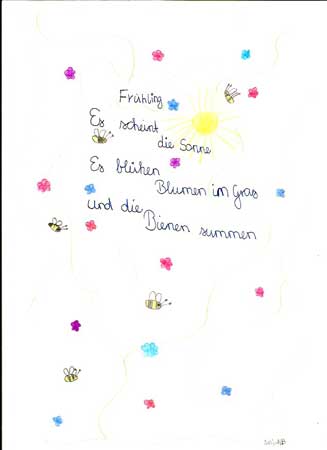 Frühling
Es scheint
die Sonne
Es blühen
Blumen im Gras
und die
Bienen summen